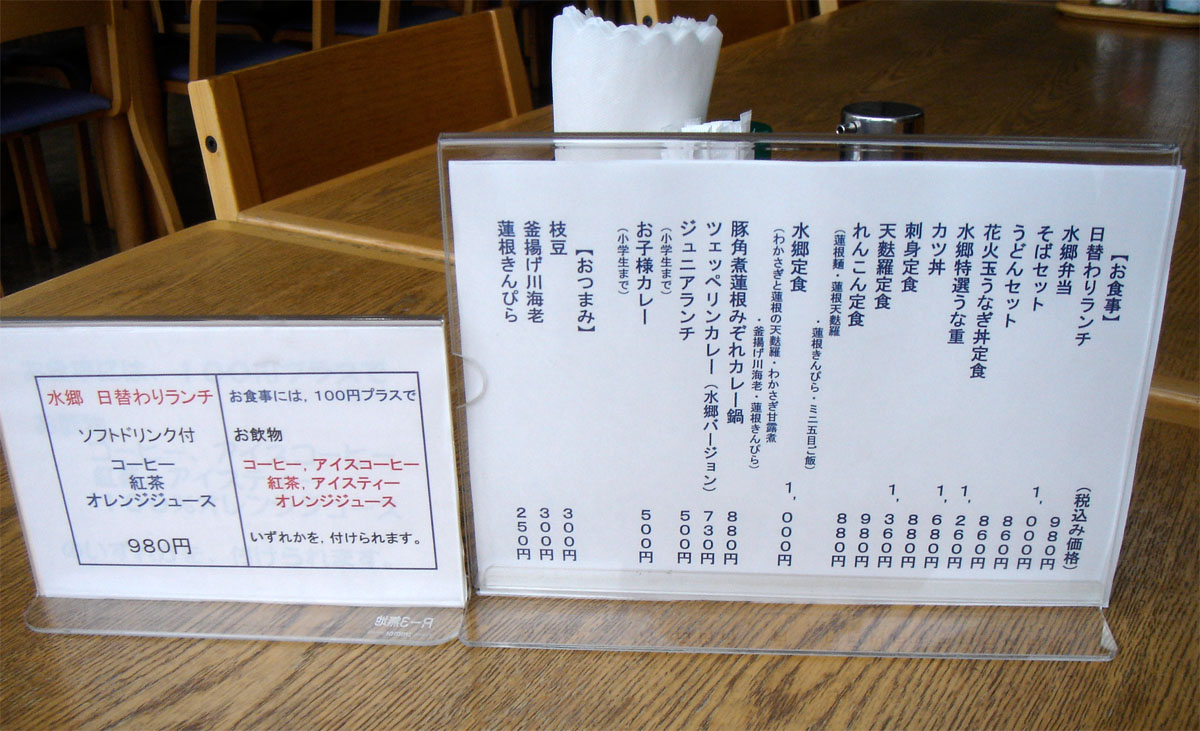 水郷 日替わりランチ
ソフトドリンク付
コーヒー
紅茶
オレンジジュース
980円
お食事には,100円プラスで
お飲物
コーヒー,アイスコーヒー
紅茶,アイスティー
オレンジジュース
いずれかを,付けられます。
【お食事】 (税込み価格)
日替わりランチ 980円
水郷弁当 1,000円
そばセット 860円
うどんセット 860円
花火玉うなぎ丼定食 1,260円
水郷特選うな重 1,680円
カツ丼 880円
刺身定食 1,360円
天麩羅定食 980円
れんこん定食 880円
(蓮根麺・蓮根天麩羅
・蓮根きんぴら・ミニ五目ご飯)
水郷定食 1,000円
(わかさぎと蓮根の天麩羅・わかさぎ甘露煮
・釜揚げ川海老・蓮根きんぴら)
豚角煮蓮根みぞれカレー鍋 880円
ツェッペリンカレー(水郷バージョン) 730円
ジュニアランチ 500円
(小学生まで)
お子様カレー 500円
(小学生まで)
【おつまみ】
枝豆 300円
釜揚げ川海老 300円
蓮根きんぴら 250円